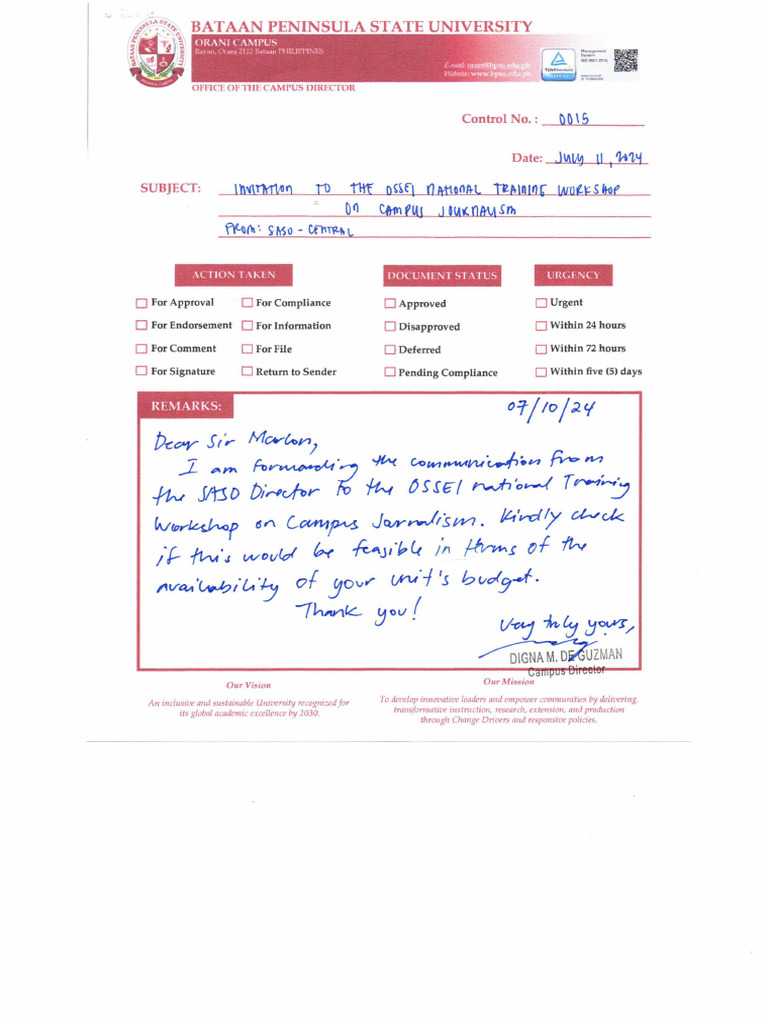 BATAAN PENINSULA STATE UNIVERSITY
ORANI CAMPUS
Bayan, Orani 2112 Bataan PHILIPPINES
E-mail: orani@bpsu.edu.ph
Website: www.bpsu.edu.ph
Management
System
ISO 9001:2015
OFFICE OF THE CAMPUS DIRECTOR
Control No. : 0015
Date: JULY 11, 2024
SUBJECT: INVITATION TO THE OSSEI NATIONAL TRAINING WORKSHOP
ON CAMPUS JOURNALISM
FROM: SASO - CENTRAL
ACTION TAKEN DOCUMENT STATUS URGENCY
For Approval For Compliance Approved Urgent
For Endorsement For Information Disapproved Within 24 hours
For Comment For File Deferred Within 72 hours
For Signature Return to Sender Pending Compliance Within five (5) days
REMARKS: 07/10/24
Dear Sir Marlon,
I am forwarding the communication from
the SASO Director to the OSSEI national Training
Workshop on Campus Jarnalism. Kindly check
if this would be feasible in terms of the
availability of your unit's budget.
Thank you!
Very truly yours,
DIGNA M. DE GUZMAN
Campus Director
Our Vision
An inclusive and sustainable University recognized for
its global academic excellence by 2030.
Our Mission
To develop innovative leaders and empower communities by delivering
transformative instruction, research, extension, and production
through Change Drivers and responsive policies.